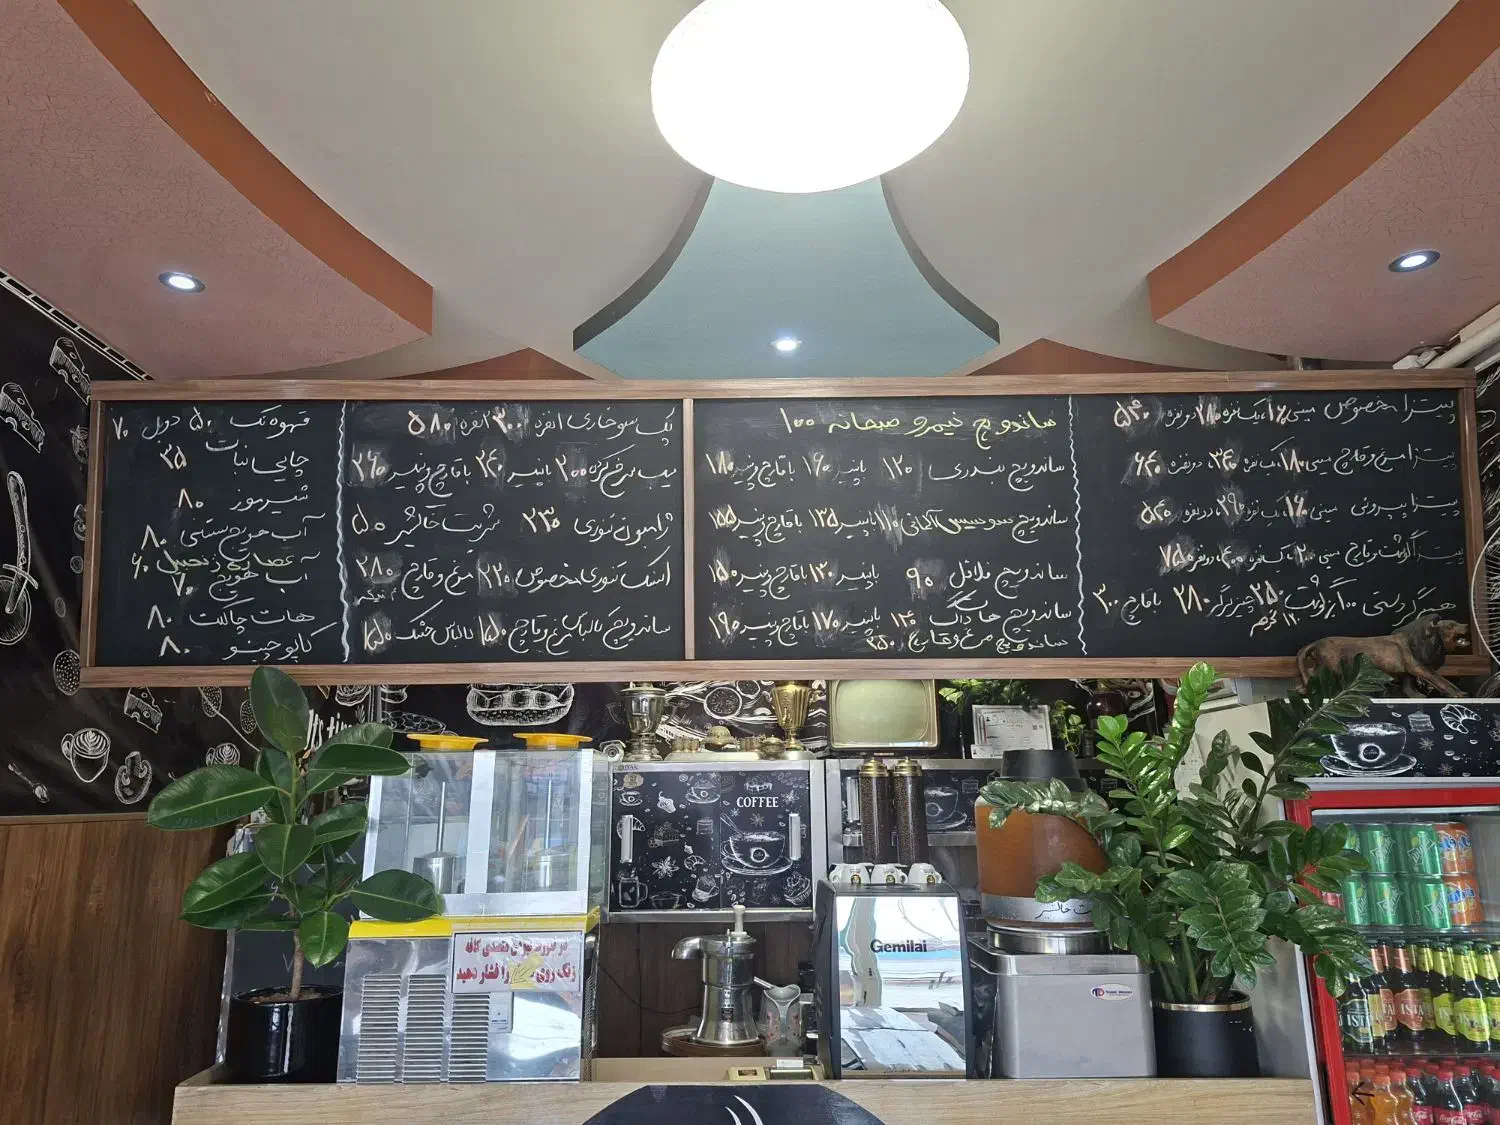 پیتزا مخصوص مینی ۱۸۰، یک نفره ۲۸۰، دو نفره ۵۴۰
پیتزا مرغ و قارچ مینی ۱۸۰، یک نفره ۳۴۰، دو نفره ۶۴۰
پیتزا پپرونی مینی ۱۶۰، یک نفره ۲۹۰، دو نفره ۵۴۰
پیتزا گوشت و قارچ مینی ۲۰۰، یک نفره ۴۰۰، دو نفره ۷۵۰
همبرگر دستی ۱۰۰٪ گوشت ۲۵۰ چیزبرگر ۲۸۰ با قارچ ۳۰۰
۱۱۰ گرم
ساندویچ نیمرو صبحانه ۱۰۰
ساندویچ بندری ۱۲۰ با پنیر ۱۶۰ با قارچ و پنیر ۱۸۰
ساندویچ سوسیس آلمانی ۱۱۰ با پنیر ۱۳۵ با قارچ و پنیر ۱۵۵
ساندویچ فلافل ۹۰ با پنیر ۱۳۰ با قارچ پنیر ۱۵۰
ساندویچ هات داگ ۱۴۰ با پنیر ۱۷۰ با قارچ پنیر ۱۹۰
ساندویچ مرغ و قارچ ۲۵۰
پک سوخاری ۱ نفره ۳۰۰ ۲ نفره ۵۸۰
سیب سرخ کرده ۲۰۰ با پنیر ۲۴۰ با قارچ و پنیر ۲۶۰
ژامبون تنوری ۲۳۰ شربت خاکشیر ۵۰
اسنک تنوری مخصوص ۲۲۰ مرغ و قارچ ۲۸۰
ساندویچ کالباس مرغ و قارچ ۱۵۰ کالباس خشک ۱۵۰
قهوه تک ۵۰ دوبل ۷۰
چایی نبات ۳۵
شیرموز ۸۰
آب هویج بستنی ۸۰
عصاره زنجبیل ۶۰
آب هویج ۷۰
هات چاکلت ۸۰
کاپوچینو ۸۰
COFFEE
Gemilai
در صورت نبودن متصدی کافه
زنگ روی را فشار دهید
ISTA